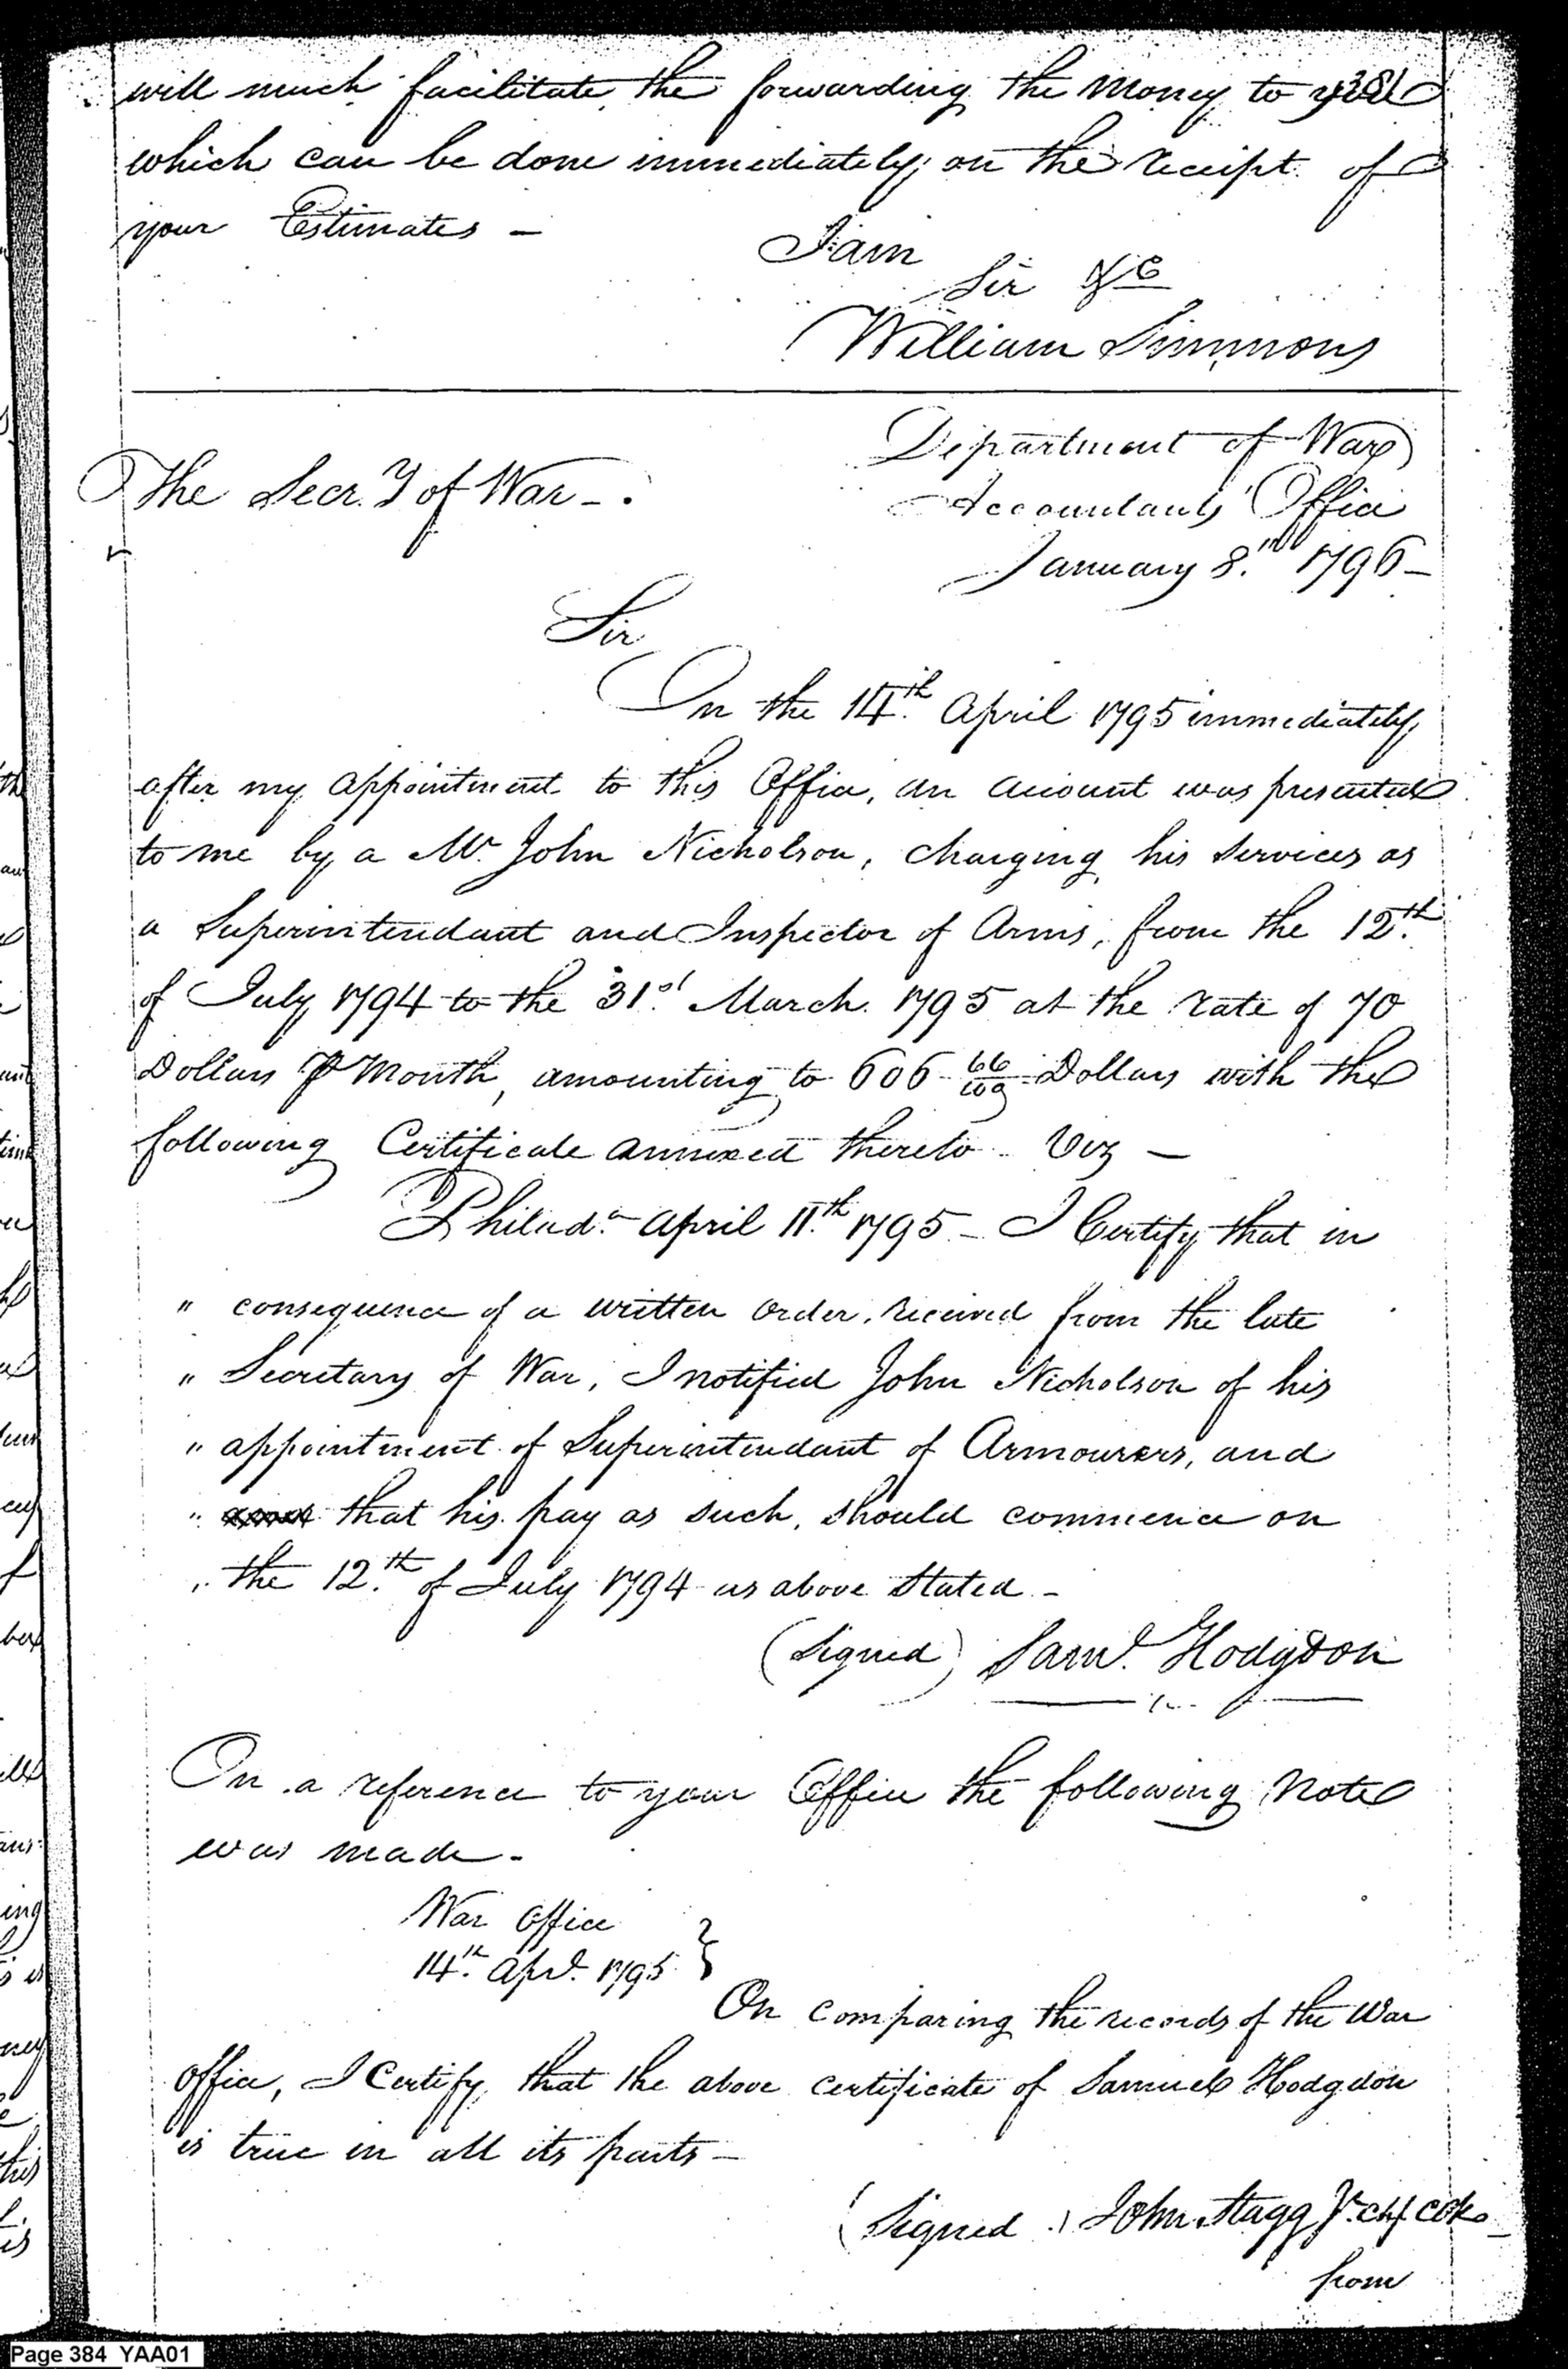 381
will much facilitate the forwarding the Money to you
which can be done immediately on the receipt of
your Estimates —
I am
Sir &c
William Simmons
Department of War
The Secr.y of War -.
Accountants Office
January 8.th 1796 -
Sir
On the 14.th April 1795 immediately
after my appointment to this Office, an account was presented
to me by a Mr. John Nicholson, charging his services as
a Superintendant and Inspector of Arms, from the 12.th
of July 1794 to the 31.st March 1795 at the rate of 70
Dollars P Month, amounting to 606 66/100 Dollars with the
following Certificate annexed thereto Viz —
Philad.a April 11.th 1795 - I Certify that in
" consequence of a written order, received from the late
" Secretary of War, I notified John Nicholson of his
" appointment of Superintendant of Armourers, and
" and that his pay as such, should commence on
" the 12.th of July 1794 as above Stated -
(Signed) Saml. Hodgdon
On a reference to your Office the following note
was made -
War Office }
14.th Apl. 1795 }
On comparing the records of the War
office, I Certify, that the above certificate of Samuel Hodgdon
is true in all its parts —
(Signed) John Stagg Jr. chf Clk.
from
Page 384 YAA01